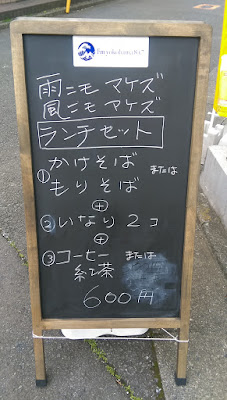 雨ニモ マケズ
風ニモ マケズ
ランチセット
① かけそば または
もりそば
+
② いなり 2コ
+
③ コーヒー または
紅茶
600円